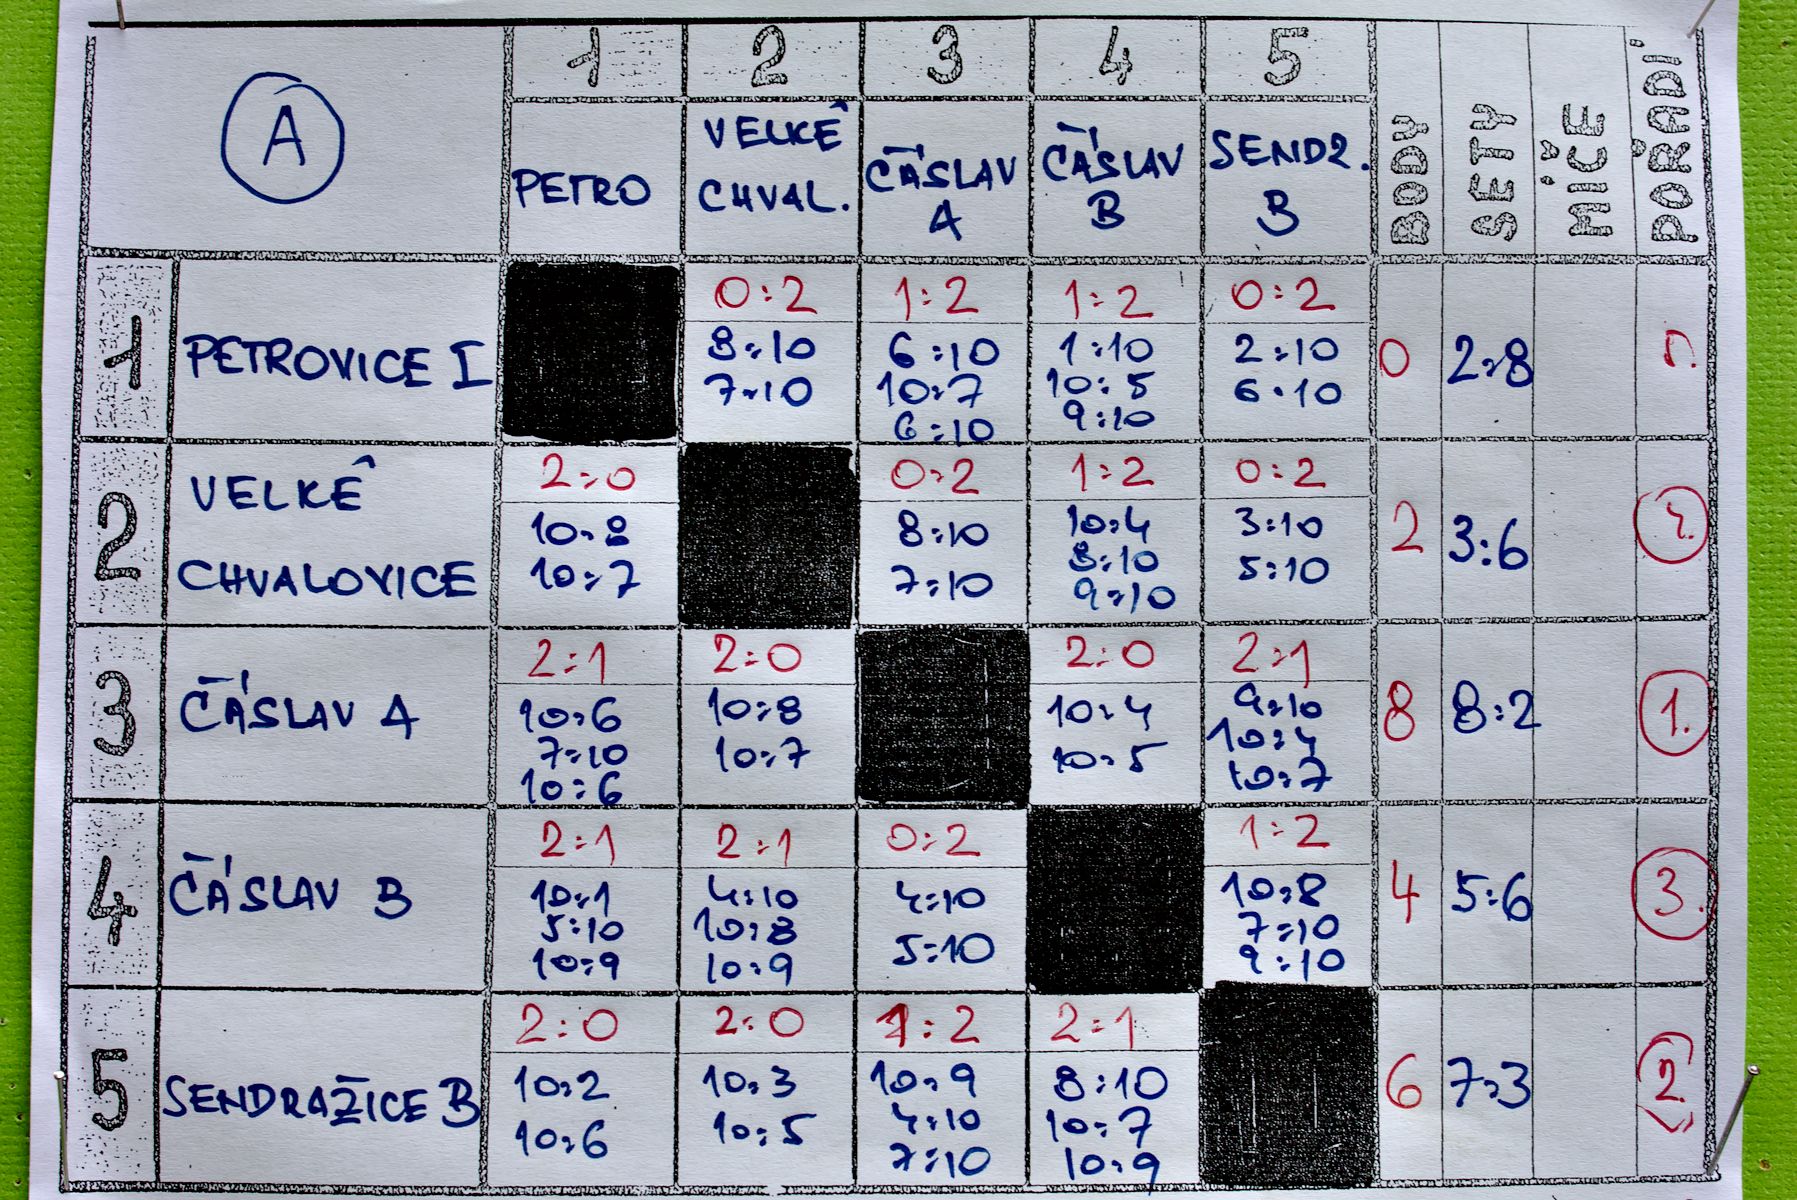 A
1 2 3 4 5
PETRO VELKÉ CHVAL. ČÁSLAV A ČÁSLAV B SENDR. B BODY SETY MÍČE POŘADÍ
1 PETROVICE I
0:2 1:2 1:2 0:2
8:10 6:10 1:10 2:10
7:10 10:7 10:5 6:10
6:10 9:10
0 2:8 5.
2 VELKÉ
CHVALOVICE
2:0 0:2 1:2 0:2
10:8 8:10 10:4 3:10
10:7 7:10 8:10 5:10
9:10
2 3:6 4.
3 ČÁSLAV A
2:1 2:0 2:0 2:1
10:6 10:8 10:4 9:10
7:10 10:7 10:5 10:4
10:6 10:7
8 8:2 1.
4 ČÁSLAV B
2:1 2:1 0:2 1:2
10:1 4:10 4:10 10:8
5:10 10:8 5:10 7:10
10:9 10:9 9:10
4 5:6 3.
5 SENDRAŽICE B
2:0 2:0 1:2 2:1
10:2 10:3 10:9 8:10
10:6 10:5 4:10 10:7
7:10 10:9
6 7:3 2.